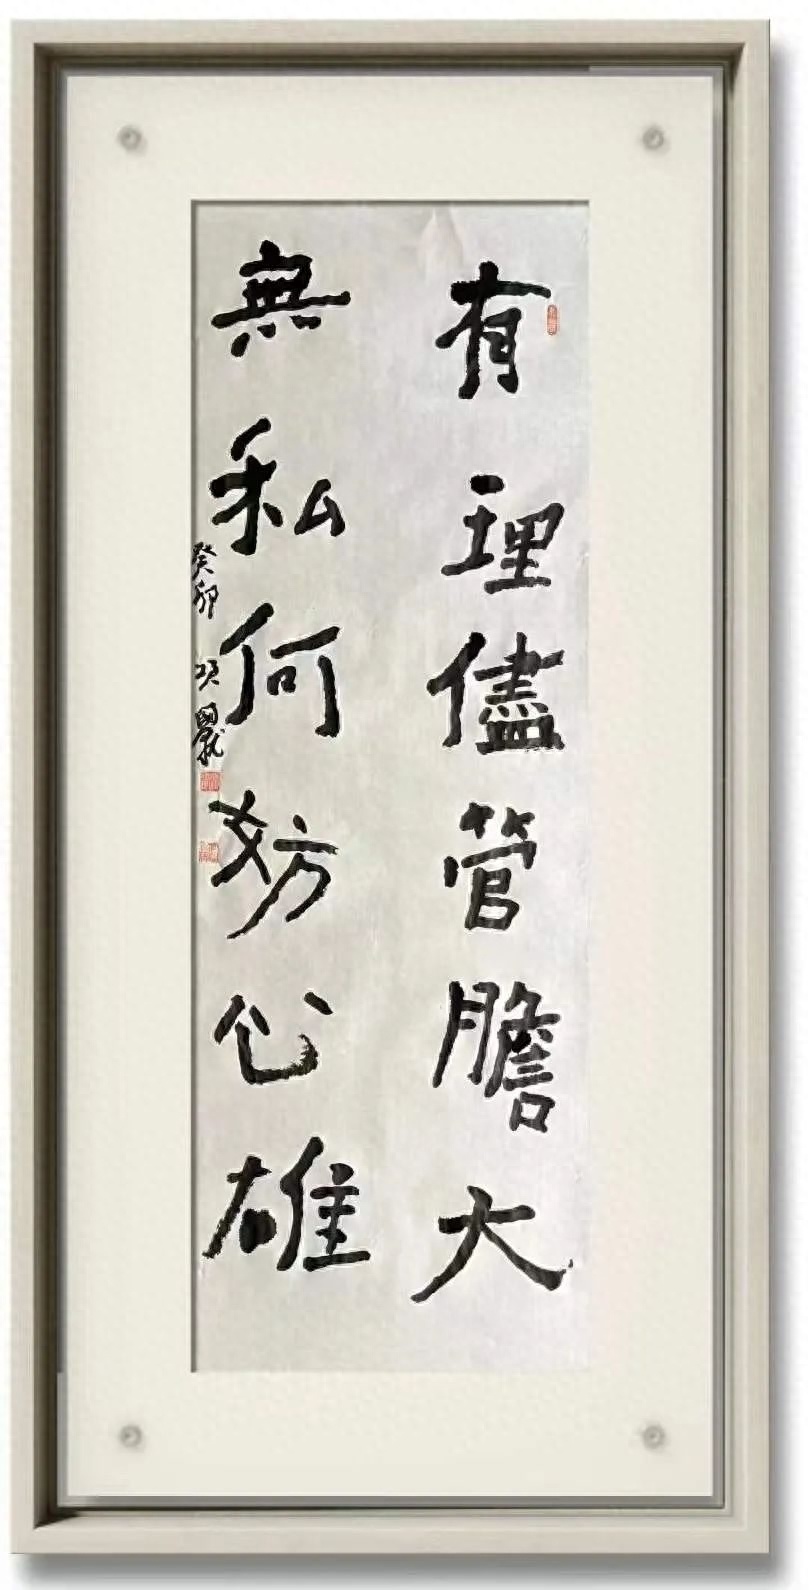 有理儘管膽大
無私何妨心雄
癸卯 項國